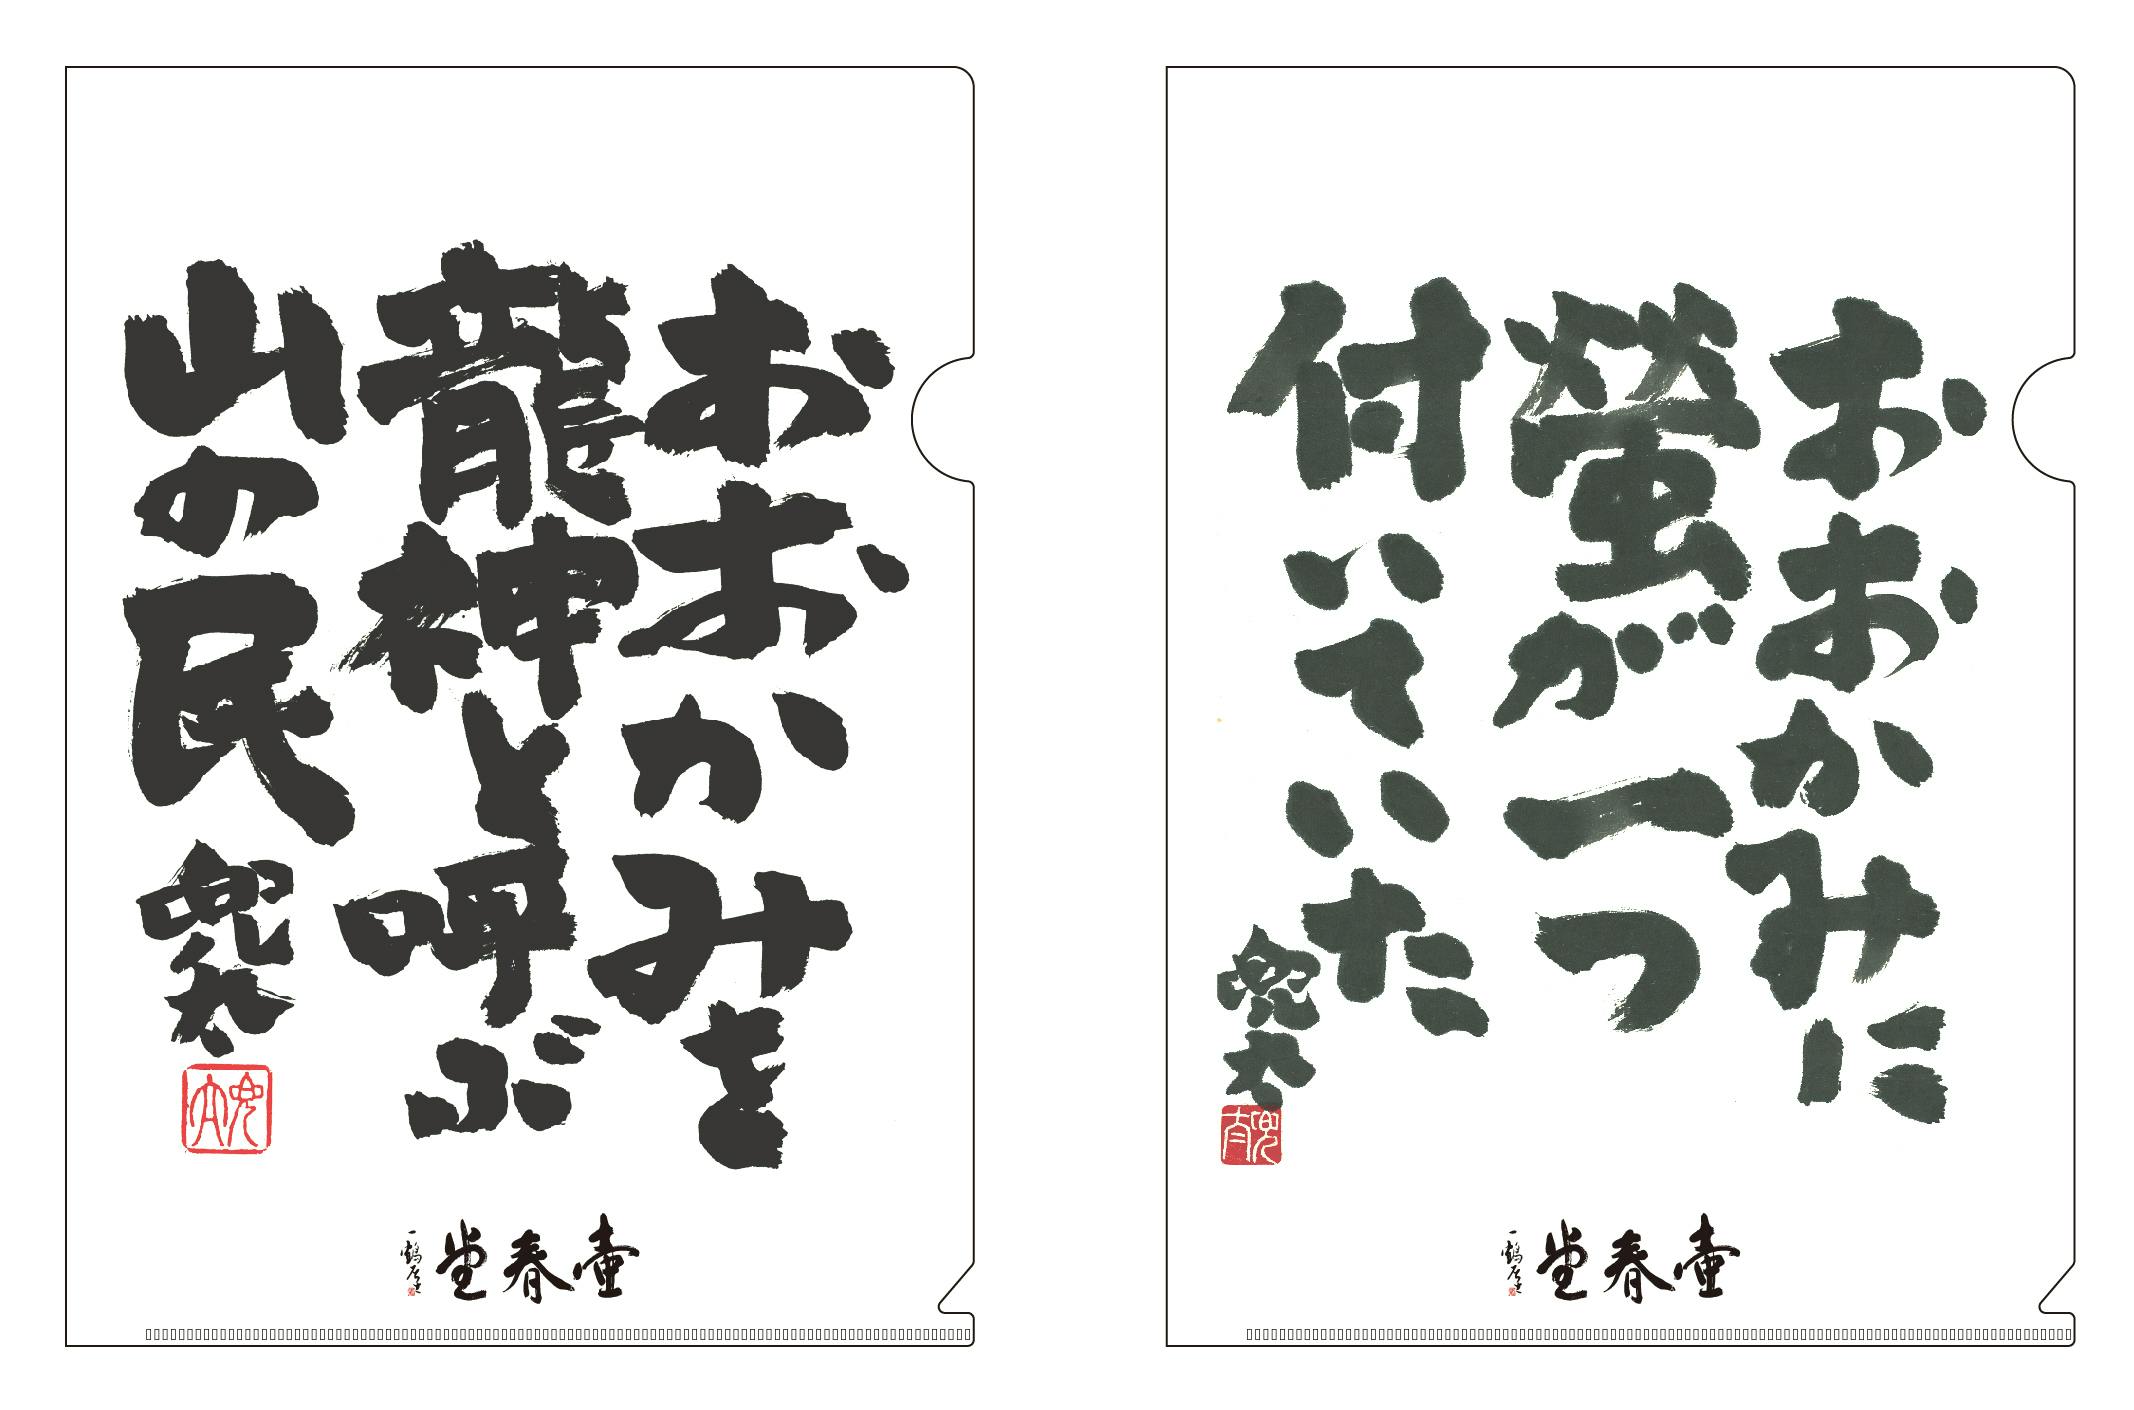 おおかみを
龍神と呼ぶ
山の民
兜太
兜太
壷春堂
一鶴居士
おおかみに
螢が一つ
付いていた
兜太
兜太
壷春堂